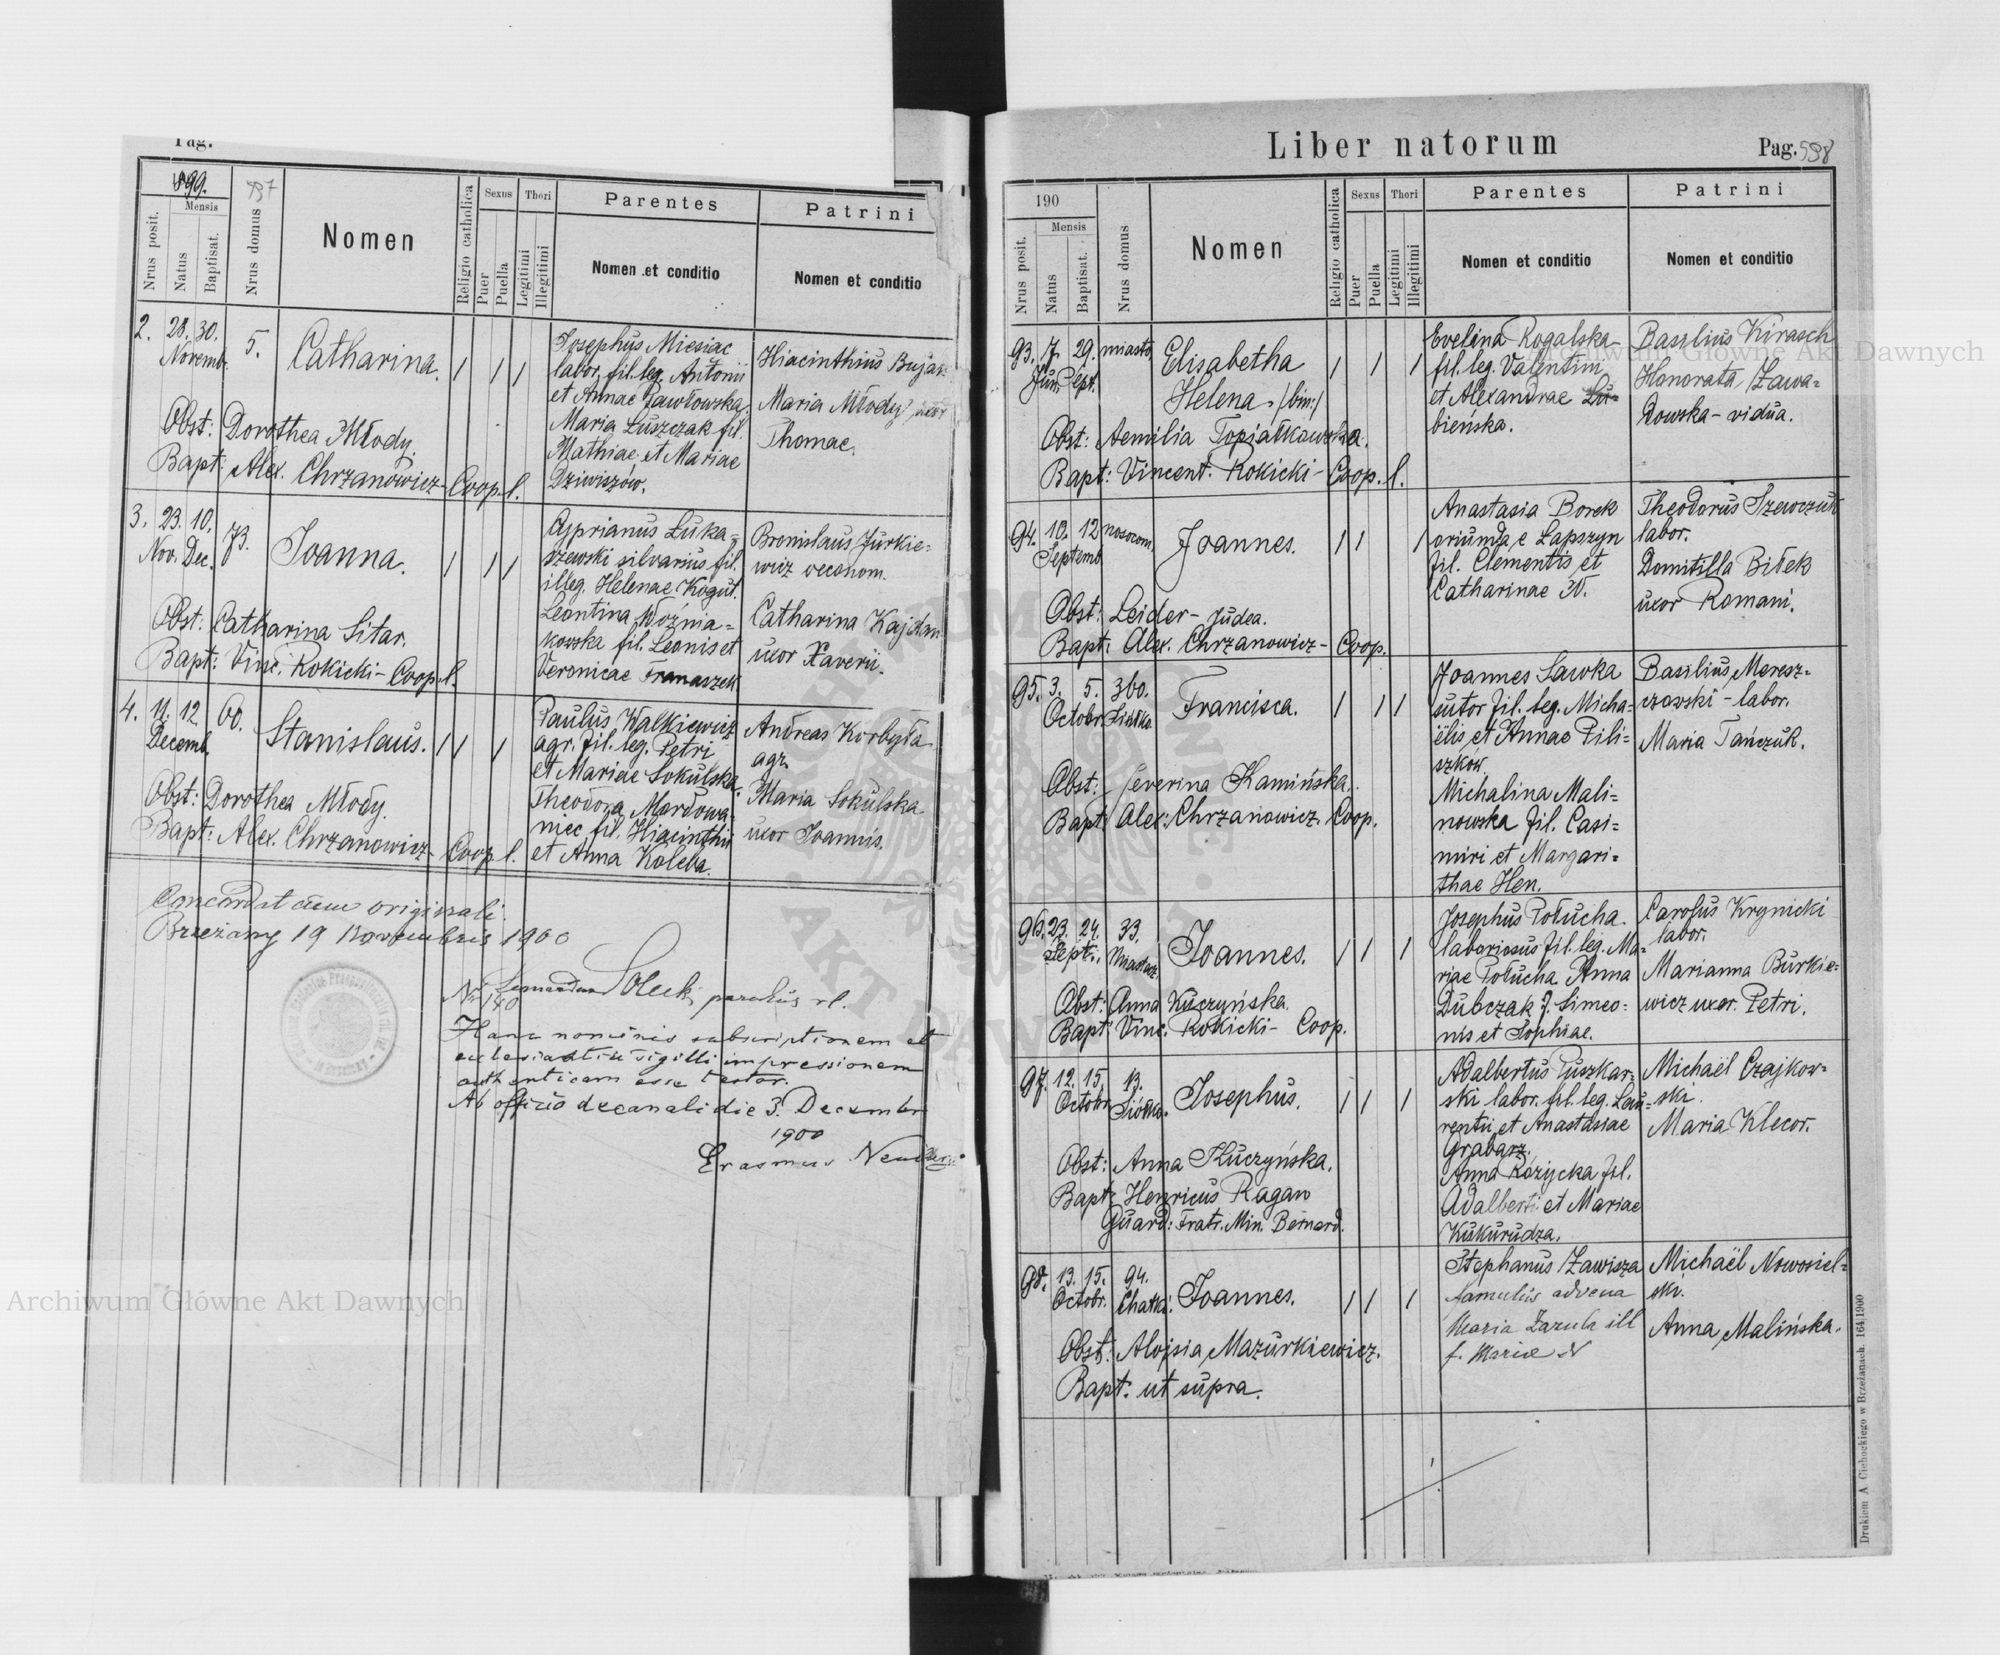 Pag.
899.
Nrus posit.
Mensis
Natus
Baptisat.
Nrus domus
Nomen
Religio catholica
Sexus
Puer
Puella
Thori
Legitimi
Illegitimi
Parentes
Nomen et conditio
Patrini
Nomen et conditio
2. 28. 30. Novemb. 5. Catharina.
Josephus Miesiac
labor. fil. leg. Antonii
et Annae Pawłowska.
Maria Łuszczak fil.
Mathiae et Mariae
Dziwiszów.
Hiacinthius Bujak
Maria Młody uxor
Thomae.
Obst: Dorothea Młody.
Bapt: Alex. Chrzanowicz - Coop. l.
3. 23. 10. Nov. Dec. 73. Joanna.
Cyprianus Łuka=
szewski silvarius fil.
illeg. Helenae Kogut.
Leontina Woźnia=
kowska fil. Leonis et
Veronicae Franaszek.
Bronislaus Jurkie=
wicz oeconom.
Catharina Kajdan
uxor Xaverii.
Obst. Catharina Sitar.
Bapt: Vinc. Rokicki - Coop. l.
4. 11. 12. Decemb. 60. Stanislaus.
Paulus Walkiewicz
agr. fil. leg. Petri
et Mariae Sokulska.
Theodora Mardowa=
niec fil. Hiacinthii
et Anna Koleba.
Andreas Korbyła
agr.
Maria Sokulska
uxor Joannis.
Obst: Dorothea Młody.
Bapt: Alex. Chrzanowicz - Coop l.
Concordat cum originali.
Brzeżany 19 Novembris 1900
Solecki parohus rl.
Nr 140
Hanc nominis subscriptionem et
ecclesiastici sigilli impressionem
authenticam esse testor.
Ab officio decanali die 3. Decembr
1900
Erasmus
Liber natorum
Pag. 598
190
Nrus posit.
Mensis
Natus
Baptisat.
Nrus domus
Nomen
Religio catholica
Sexus
Puer
Puella
Thori
Legitimi
Illegitimi
Parentes
Nomen et conditio
Patrini
Nomen et conditio
93. 7. Jun. 29. Sept. miasto Elisabetha
Helena /bin:/
Evelina Rogalska
fil. leg. Valentini
et Alexandrae Łu=
bieńska.
Basilius Kirasch
Honorata Zawa=
dowska - vidua.
Obst: Aemilia Topiałkowska.
Bapt: Vincent. Rokicki - Coop. l.
94. 10. 12 Septemb. nosocom. Joannes.
Anastasia Borek
oriunda e Łapszyn
fil. Clementis et
Catharinae N.
Theodorus Szewczuk
labor.
Domitilla Biłek
uxor Romani.
Obst: Leider - judea.
Bapt: Alex. Chrzanowicz - Coop.
95. 3. 5. Octobr. 360. Siółko. Francisca.
Joannes Sawka
sutor fil. leg. Micha=
ëlis et Annae Pili=
szków.
Michalina Mali=
nowska fil. Casi=
miri et Margari=
thae Hen.
Basilius Meresz=
czowski - labor.
Maria Tańczuk.
Obst: Severina Kamińska.
Bapt: Alex: Chrzanowicz. Coop.
96. 23. 24. Sept. 33. Miastecz. Joannes.
Josephus Połucha.
laboriosus fil. leg. Ma=
riae Połucha Anna
Dubczak f. Simeo=
nis et Sophiae.
Carolus Krynicki
labor.
Marianna Burkie=
wicz uxor. Petri.
Obst: Anna Kuczyńska.
Bapt: Vinc. Rokicki - Coop.
97. 12. 15. Octobr. 13. Siółko. Josephus.
Adalbertus Puszkar=
ski labor. fil. leg. Lau=
rentii et Anastasiae
Grabasz.
Anna Różycka fil.
Adalberti et Mariae
Kukurudza.
Michaël Czajkow=
ski.
Maria Klecor.
Obst: Anna Kuczyńska.
Bapt: Henricus Kagan
Guard: Fratr. Min. Bernard.
98. 13. 15. Octobr. 94. Chatki. Joannes.
Stephanus Zawisza
famulus advena
Maria Zazula ill
f. Mariae N
Michaël Nowosiel=
ski.
Anna Malińska.
Obst: Aloisia Mazurkiewicz.
Bapt: ut supra.
Drukiem A Ciehockiego w Brzeżanach. 164/1900
Archiwum Główne Akt Dawnych
Archiwum Główne Akt Dawnych